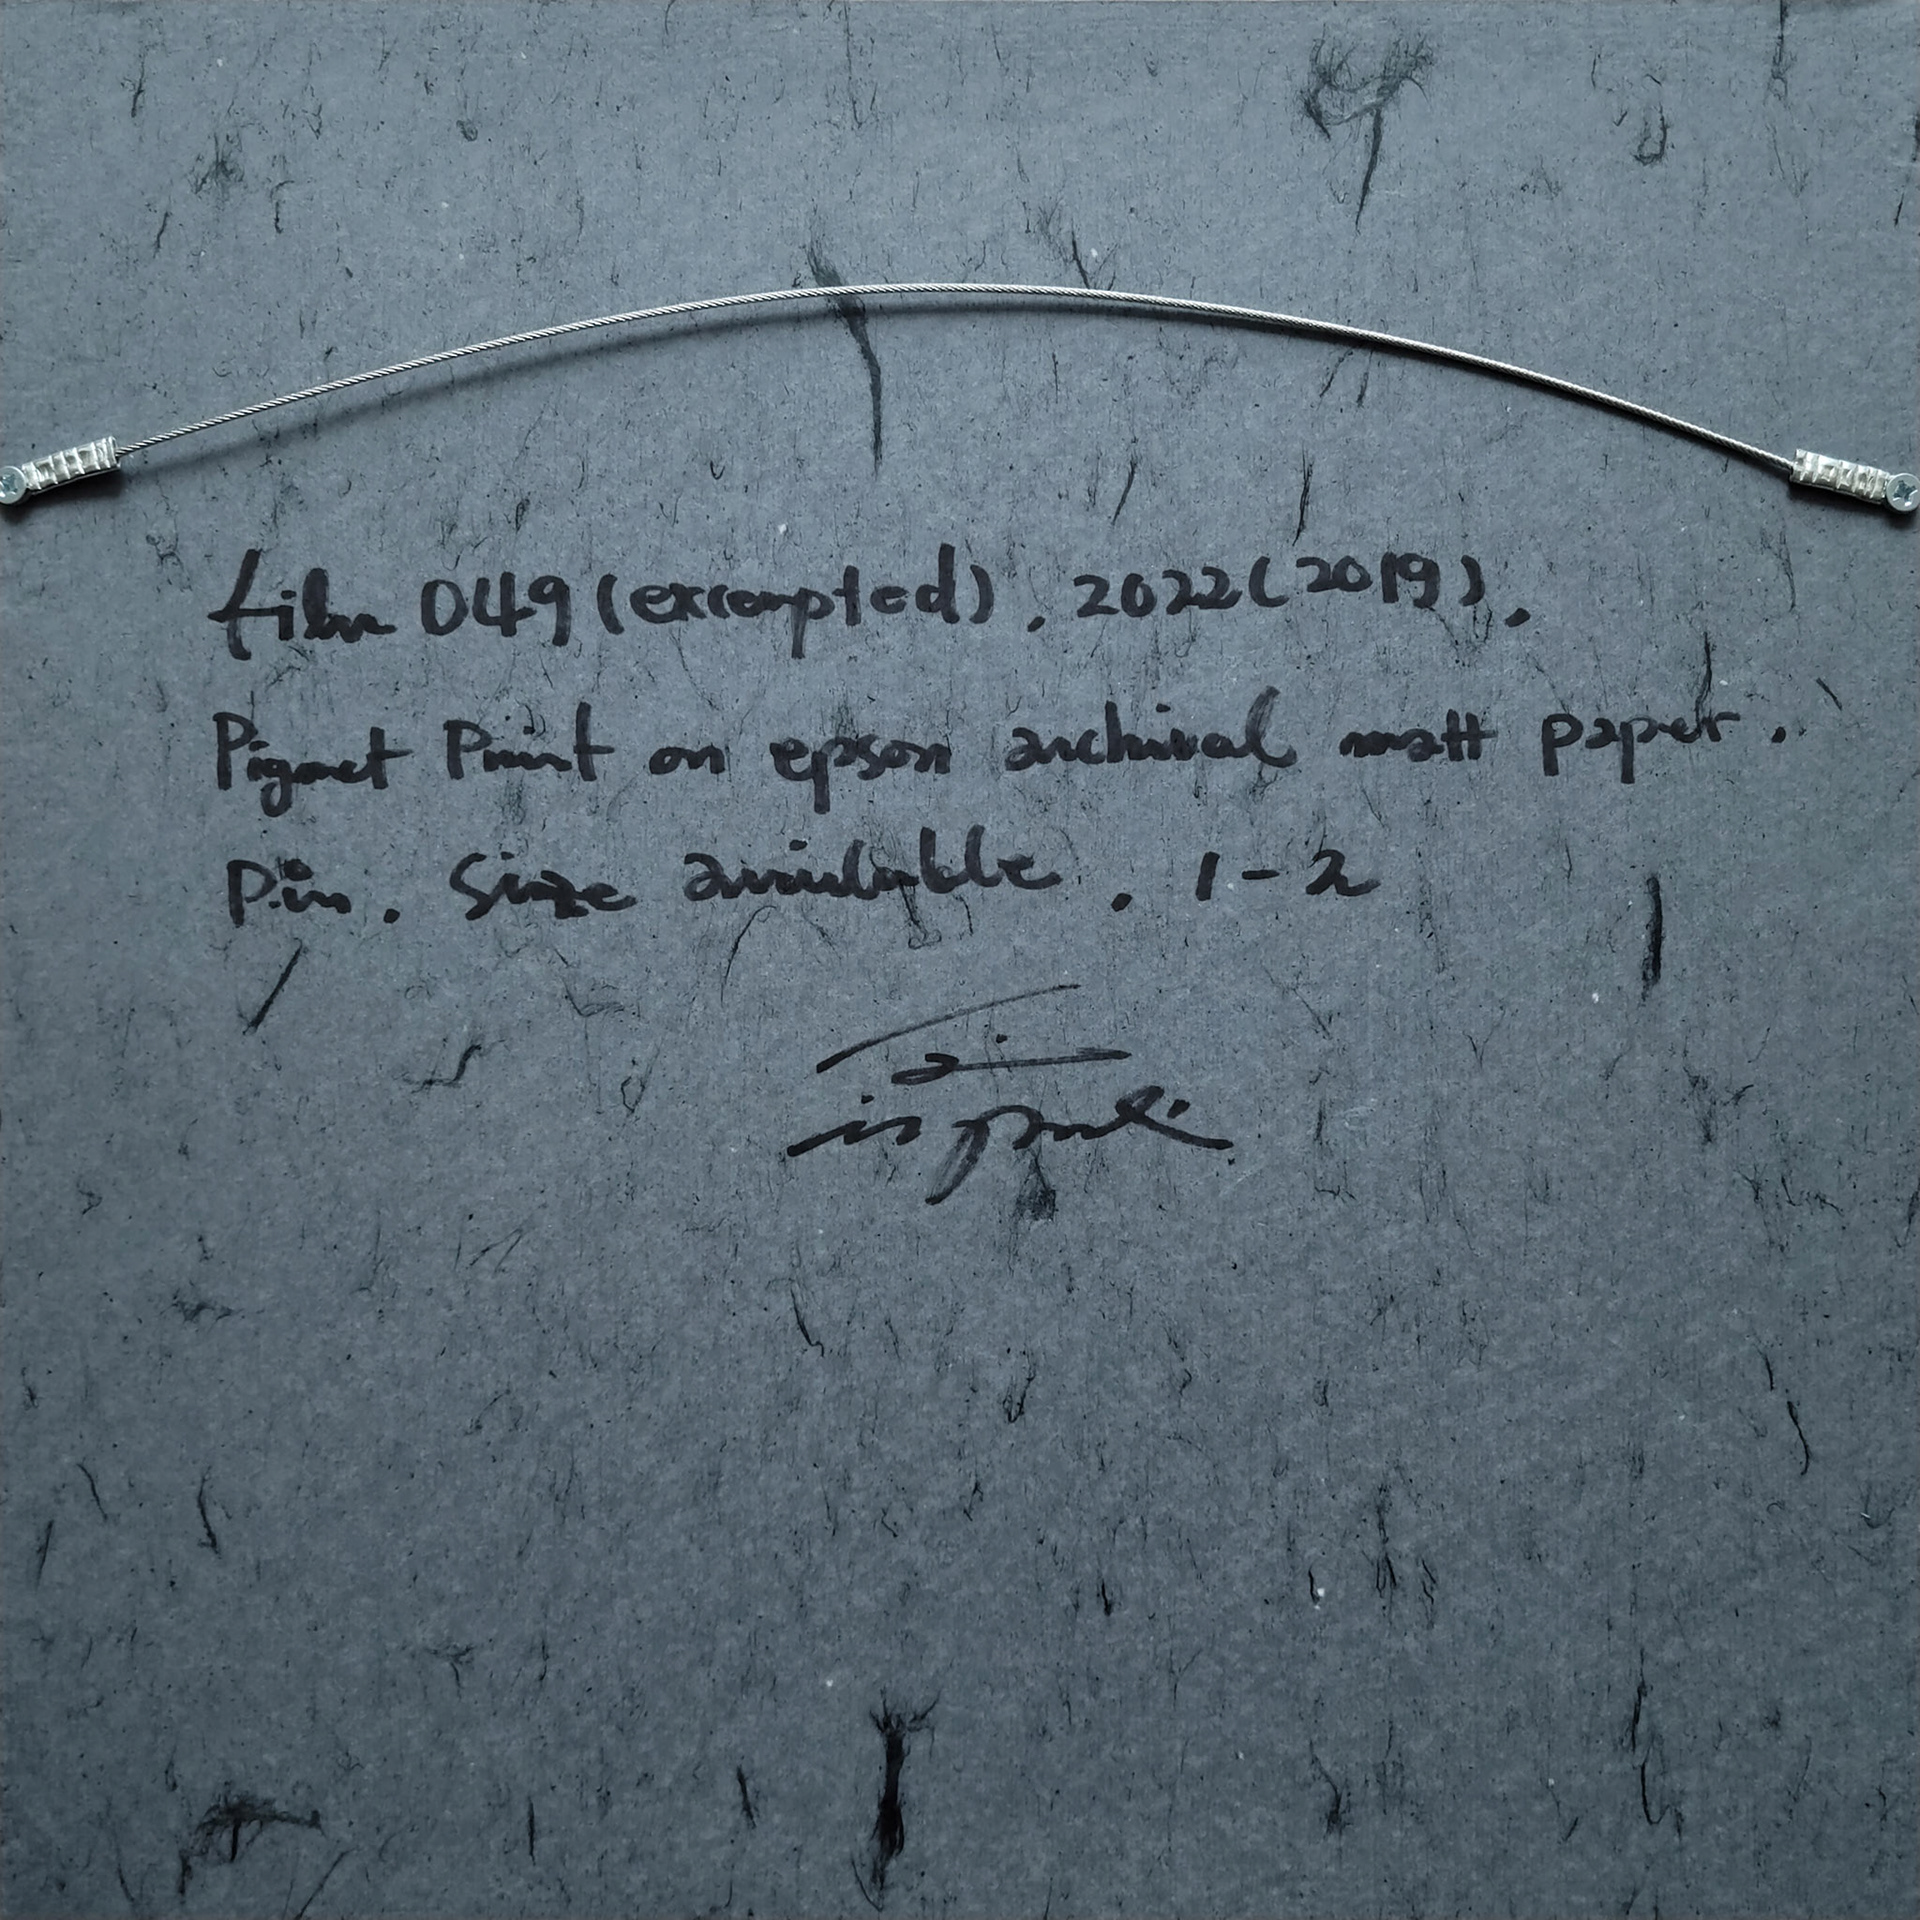 film 049 (excerpted). 2022 (2019).
Pigmet Print on epson archival matt paper.
Pin. Size available. 1-2